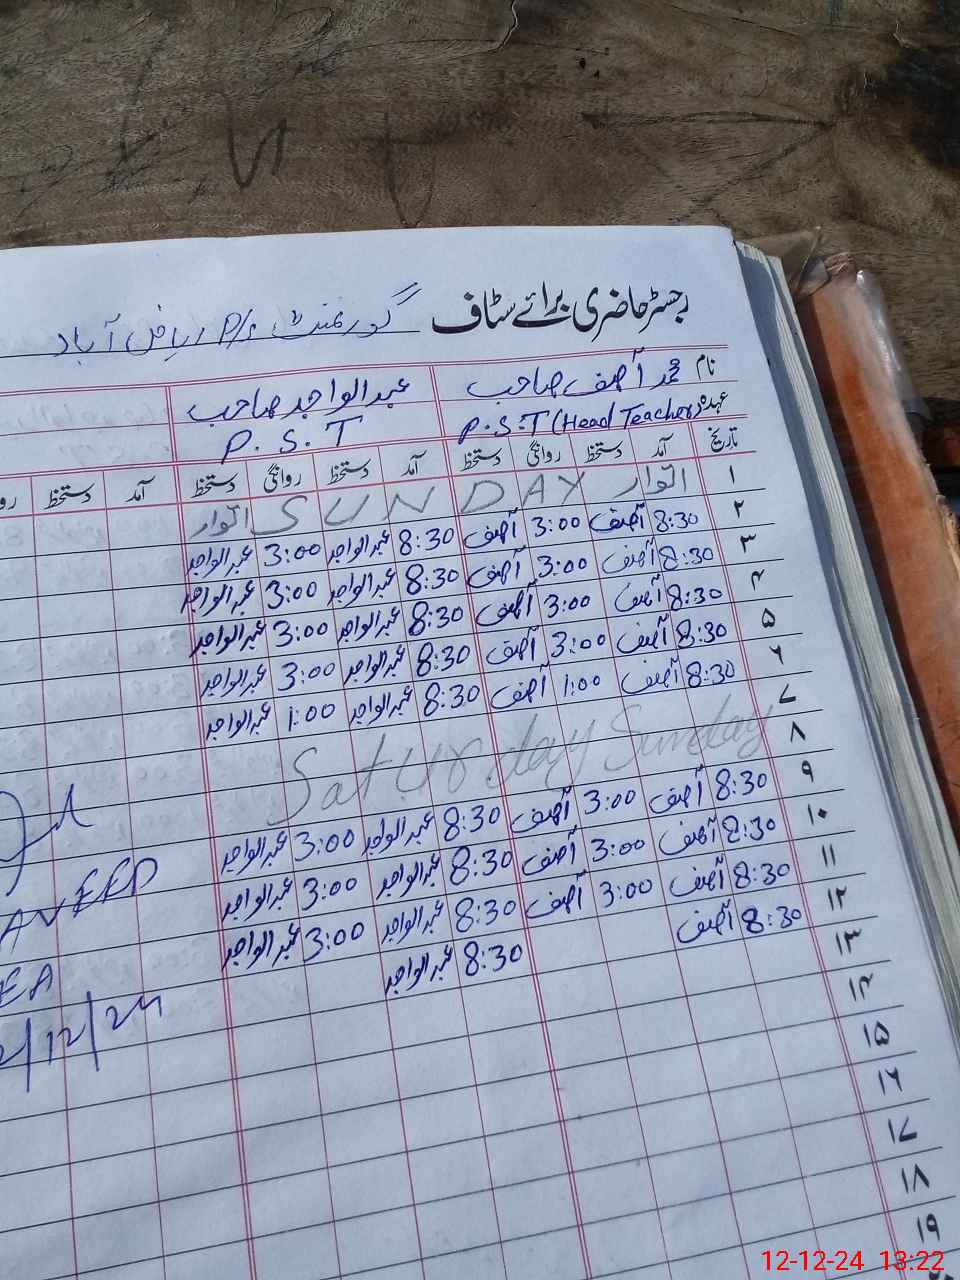 رجسٹر حاضری برائے سٹاف گورنمنٹ P/s ریاض آباد
نام محمد آصف صاحب عبدالواجد صاحب
عہدہ P.S.T (Head Teacher) P.S.T
تاریخ آمد دستخط روانگی دستخط آمد دستخط روانگی دستخط آمد دستخط
۱ اتوار SUNDAY اتوار
۲ 8:30 آصف 3:00 آصف 8:30 عبدالواجد 3:00 عبدالواجد
۳ 8:30 آصف 3:00 آصف 8:30 عبدالواجد 3:00 عبدالواجد
۴ 8:30 آصف 3:00 آصف 8:30 عبدالواجد 3:00 عبدالواجد
۵ 8:30 آصف 3:00 آصف 8:30 عبدالواجد 3:00 عبدالواجد
۶ 8:30 آصف 1:00 آصف 8:30 عبدالواجد 1:00 عبدالواجد
۷
Saturday Sunday
۸
۹ 8:30 آصف 3:00 آصف 8:30 عبدالواجد 3:00 عبدالواجد
۱۰ 8:30 آصف 3:00 آصف 8:30 عبدالواجد 3:00 عبدالواجد
۱۱ 8:30 آصف 3:00 آصف 8:30 عبدالواجد 3:00 عبدالواجد
۱۲ 8:30 آصف 8:30 عبدالواجد
۱۳
۱۴
۱۵
۱۶
۱۷
۱۸
۱۹
AVEED
EA
2/12/24
12-12-24 13:22